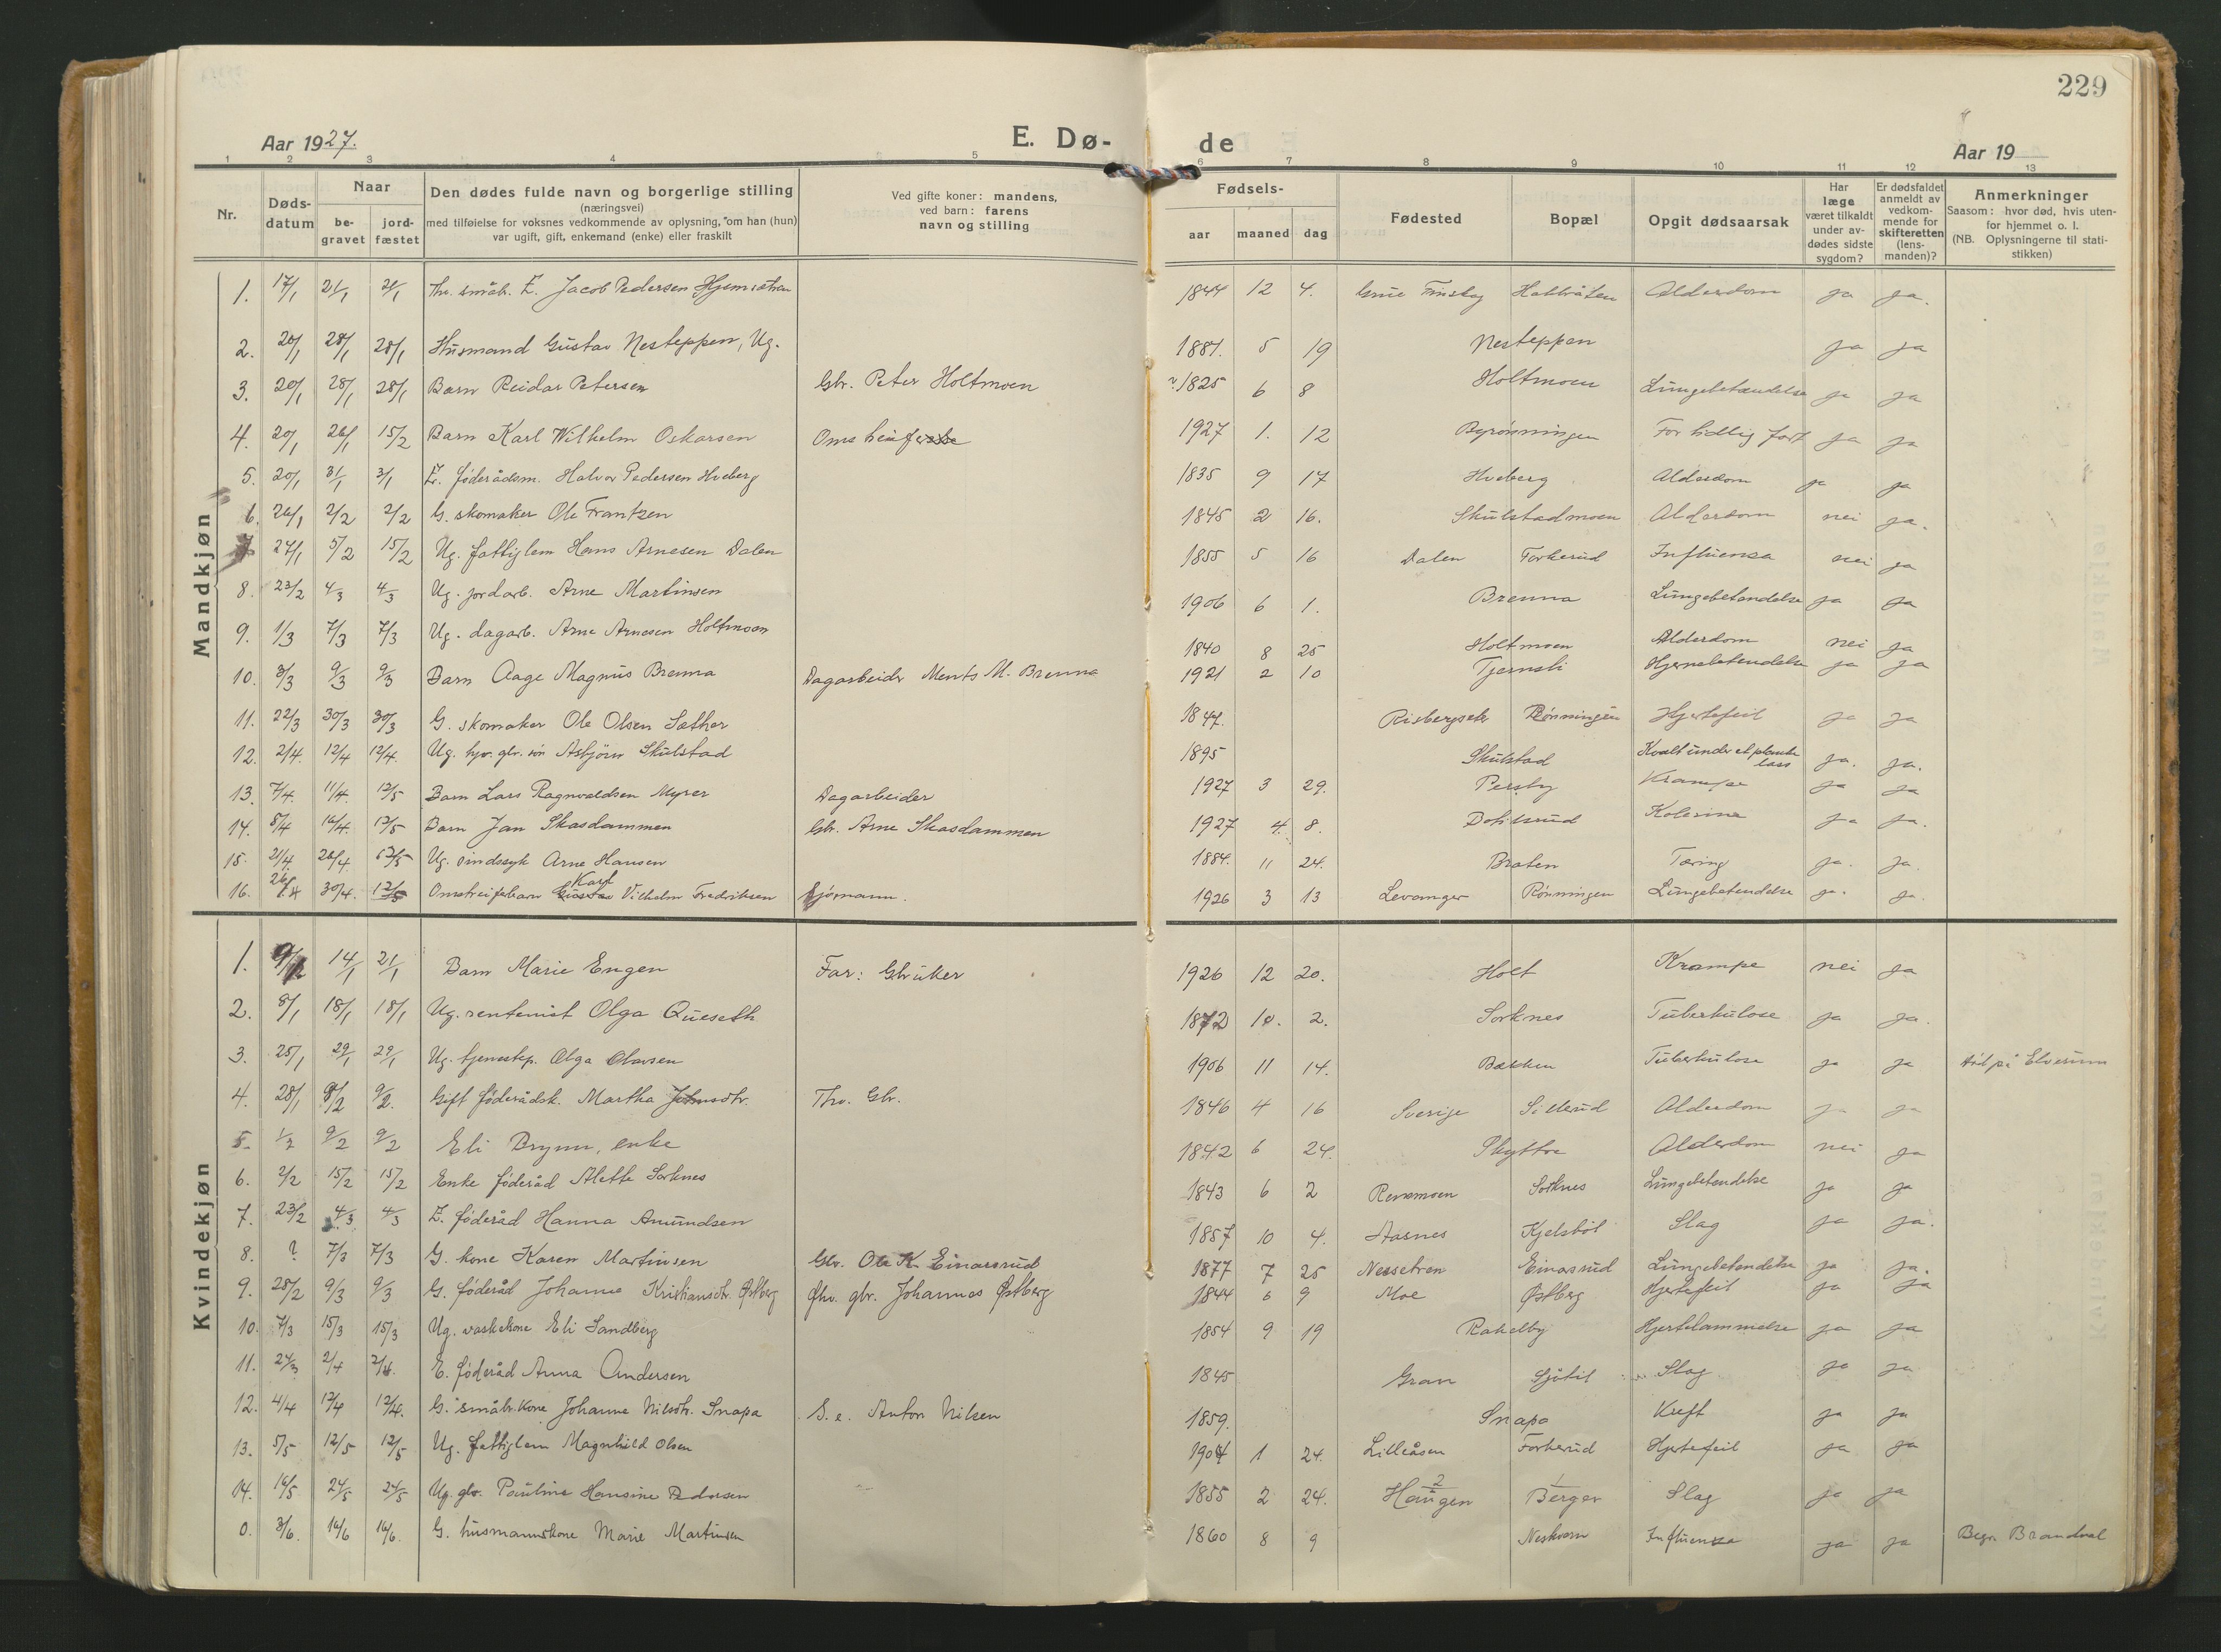 229
Aar 1927.
E. Dø-
de
Aar 19
1 2 3 4 5 6 7 8 9 10 11 12 13
Nr.
Døds-datum
Naar
be-gravet
jord-fæstet
Den dødes fulde navn og borgerlige stilling
(næringsvei)
med tilføielse for voksnes vedkommende av oplysning, om han (hun)
var ugift, gift, enkemand (enke) eller fraskilt
Ved gifte koner: mandens,
ved barn: farens
navn og stilling
Fødsels-
aar maaned dag
Fødested
Bopæl
Opgit dødsaarsak
Har læge været tilkaldt under av-dødes sidste sygdom?
Er dødsfaldet anmeldt av vedkom-mende for skifteretten (lens-manden)?
Anmerkninger
Saasom: hvor død, hvis uten-
for hjemmet o. l.
(NB. Oplysningerne til stati-
stikken)
Mandkjøn
1. 17/1 21/1 21/1 Jacob Pedersen 1844 12 4. Grue Finskog Alderdom ja ja.
2. 20/1 28/1 28/1 Husmand Gustav Nesteppen, Ug. 1881. 5 19 Nesteppen ja ja
3. 20/1 28/1 28/1 Barn Reidar Petersen Gbr. Peter Holtmoen 1825 6 8 Holtmoen Lungebetændelse ja ja
4. 20/1 15/2 Barn Karl Wilhelm Oskarsen 1927 1. 12 Byrönningen For tidlig født ja ja
5. 20/1 31/1 E. föderådsm. Halvor Pedersen Hveberg 1835 9 17 Hveberg Alderdom ja ja
6. 26/1 2/2 2/2 G. skomaker Ole Frantzen 1845 2 16. Skulstadmoen Alderdom nei ja.
7 27/1 5/2 15/2 Ug. fattiglem Hans Arnesen Dalen 1855 5 16 Dalen Forkerud Influensa nei ja
8. 23/2 4/3 4/3 Ug. jordarb. Arne Martinsen 1906 6 1. Brenna Lungebetendelse ja ja
9. 1/3 7/3 7/3 Ug. dagarb. Arne Arnesen Holtmoen 1840 8 25 Holtmoen Alderdom nei ja
10. 3/3 9/3 9/3 Barn Aage Magnus Brenna Dagarbeider Ments M. Brenna 1921 2 10 Tjernsli Hjernebetendelse ja ja
11. 22/3 30/3 30/3 G. skomaker Ole Olsen Sæther 1847. Risbergseter Rönningen Hjertefeil ja ja
12. 2/4. 12/4 12/4. Ug. gbr. sön Asbjörn Skulstad 1895 Skulstad Kvalt under et planke lass ja. ja.
13. 7/4. 11/4. 12/5 Barn Lars Ragnvaldsen Myrer Dagarbeider 1927 3 29. Persby Krampe ja ja
14. 8/4 16/4. 12/5 Barn Jan Skasdammen Gbr. Arne Skasdammen 1927 4. 8. Kolerina ja ja.
15. 21/4. 26/4 Ug. sindssyk Arne Hansen 1884. 11 24. Bråten Tæring ja. ja.
16. 26/4 30/4. 12/5 Omstreiferbarn Gustav Karl Vilhelm Fredriksen Sjömann. 1926 3 13 Levanger Rönningen Lungebetendelse ja. ja.
Kvindekjøn
1. 9/1 14/1 21/1 Barn Marie Engen Far: Gbruker 1926 12 20. Holt Krampe nei ja
2. 8/1 18/1 18/1 Ug. rentenist Olga Queseth 1872 10. 2. Sorknes Tuberkulose ja ja.
3. 25/1 29/1 29/1 Ug. tjenestep. Olga Olavsen 1906 11 14. Bækken Tuberkulose ja ja död på Elverum
4. 28/1 9/2 9/2. Gift föderådsk. Martha Johnsdtr. Thv. Gbr. 1846 4 16 Sverige Sillerud Alderdom ja ja
5. 1/2 9/2 9/2 Eli Brynn, enke 1842 6 24. Skyttre Alderdom nei ja
6. 2/2 15/2 15/2 Enke föderåd Alette Sorknes 1843 6 2 Revsmoen Sorknes Lungebetendelse ja ja
7. 23/2 4/3 4/3 E. föderåd Hanna Amundsen 1857 10 4. Aasnes Kjelsböl Slag ja ja.
8. ? 7/3 7/3 G. kone Karen Martinsen Gbr. Ole K. Einarsrud 1877 7 25 Nessetren Einarsrud Lungebetendelse ja ja.
9. 28/2 9/3 9/3 G. föderåd Johanne Kristiansdtr. Østberg fhv. gbr. Johannes Østberg 1844 6 9 Moe Østberg Hjertefeil ja ja
10. 7/3 15/3 15/3 Ug. vaskekone Eli Sandberg 1854 9 19 Rakelby Hjertelammelse ja ja
11. 24/3 2/4 2/4. E. föderåd Anna Andersen 1845 Gran Sjöbil Slag ja ja
12. 4/4 12/4 12/4. G. småbr. kone Johanne Nilsdtr. Snapa S. e. Anton Nilsen 1859. Snapa Kreft ja ja
13. 5/5 12/5 12/5 Ug. fattiglem Magnhild Olsen 1904 1 24. Lilleåsen Forkerud Hjertefeil ja ja
14. 16/5 24/5 24/5 Ug. gbr. Pauline Hansine Pedersen 1855 2 24. Haugen 2 Berger 1 Slag ja ja
0. 3/6. 16/6 16/6. G. husmannskone Marie Martinsen 1860 8 9 Neskvern Influensa ja ja Begr. Brandval